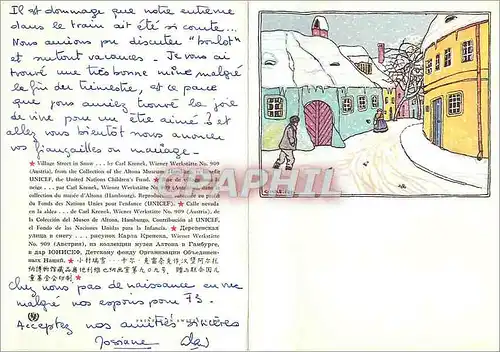 Il est dommage que notre entrevue
dans le train ait été si courte...
Nous aurions pu discuter "boulot"
et surtout vacances - Je vous ai
trouvé une très bonne mine malgré
la fin du trimestre, est ce parce
que vous auriez trouvé la joie
de vivre pour un être aimé ? et
allez vous bientôt nous annoncer
vos fiançailles ou mariage -
★ Village Street in Snow . . . by Carl Krenek, Wiener Werkstätte No. 909
(Austria), from the Collection of the Altona Museum, Hamburg
UNICEF, the United Nations Children's Fund. ★ Rue de village sous la
neige . . . par Carl Krenek, Wiener Werkstätte No 909 (Autriche), dans la
collection du musée d'Altona (Hambourg). Reproduction
du Fonds des Nations Unies pour l'enfance (UNICEF). ★ Calle nevada
en la aldea . . . de Carl Krenek, Wiener Werkstätte No. 909 (Austria), de
la Colección del Museo de Altona, Hamburgo. Contribución al UNICEF,
el Fondo de las Naciones Unidas para la Infancia. ★ Деревенская
улица в снегу . . . рисунок Карла Кренека, Wiener Werkstätte
No. 909 (Австрия), из коллекции музея Алтона в Гамбурге,
в дар ЮНИСЕФ, Детскому фонду Организации Объединен-
ных Наций. ★
Chez nous pas de naissance en vue
malgré nos espoirs pour 73.
Acceptez nos amitiés sincères
Josiane
DELCAMPHIL